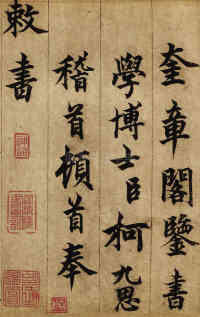 奎章閣鑒書
學博士臣柯九思
稽首頓首奉
敕書